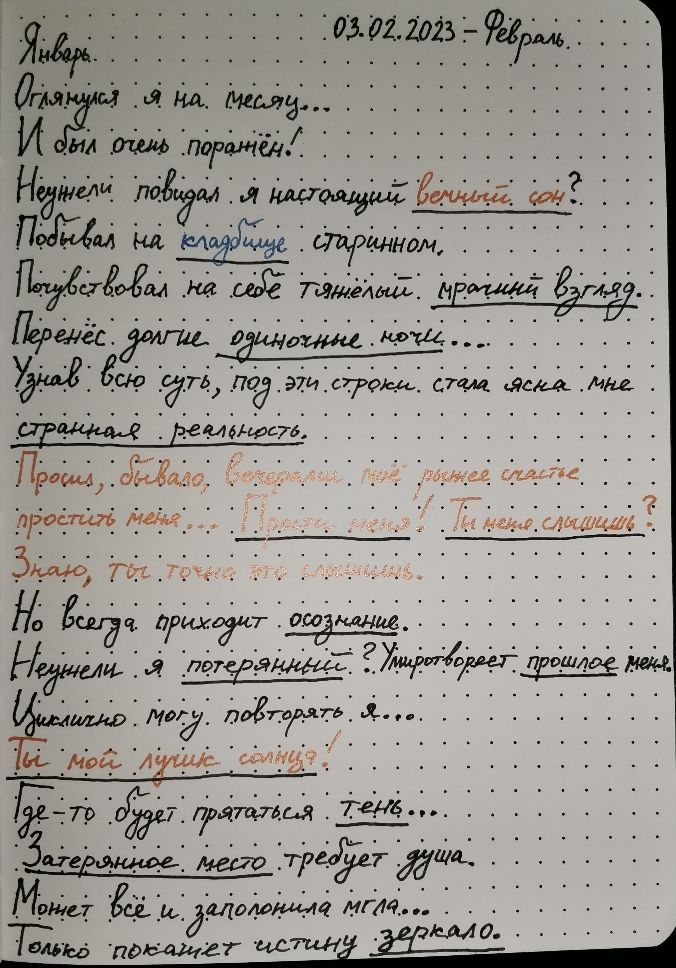 03.02.2023 – Февраль.
Январь.
Оглянулся я на месяц...
И был очень поражён!
Неужели повидал я настоящий вечный сон?
Побывал на кладбище старинном.
Почувствовал на себе тяжёлый мрачний взгляд.
Перенёс долгие одиночные ночи...
Узнав всю суть, под эти строки стала ясна мне
странная реальность.
Просил, бывало, вечерами моё рыжее счастье
простить меня... Прости меня! Ты меня слышишь?
Знаю, ты точно это слышишь.
Но всегда приходит осознание.
Неужели я потерянный? Умиротворяет прошлое меня.
Циклично могу повторять я...
Ты мой лучик солнца!
Где-то будет прятаться тень...
Затерянное место требует душа.
Может всё и заполонила мгла...
Только покажет истину зеркало.